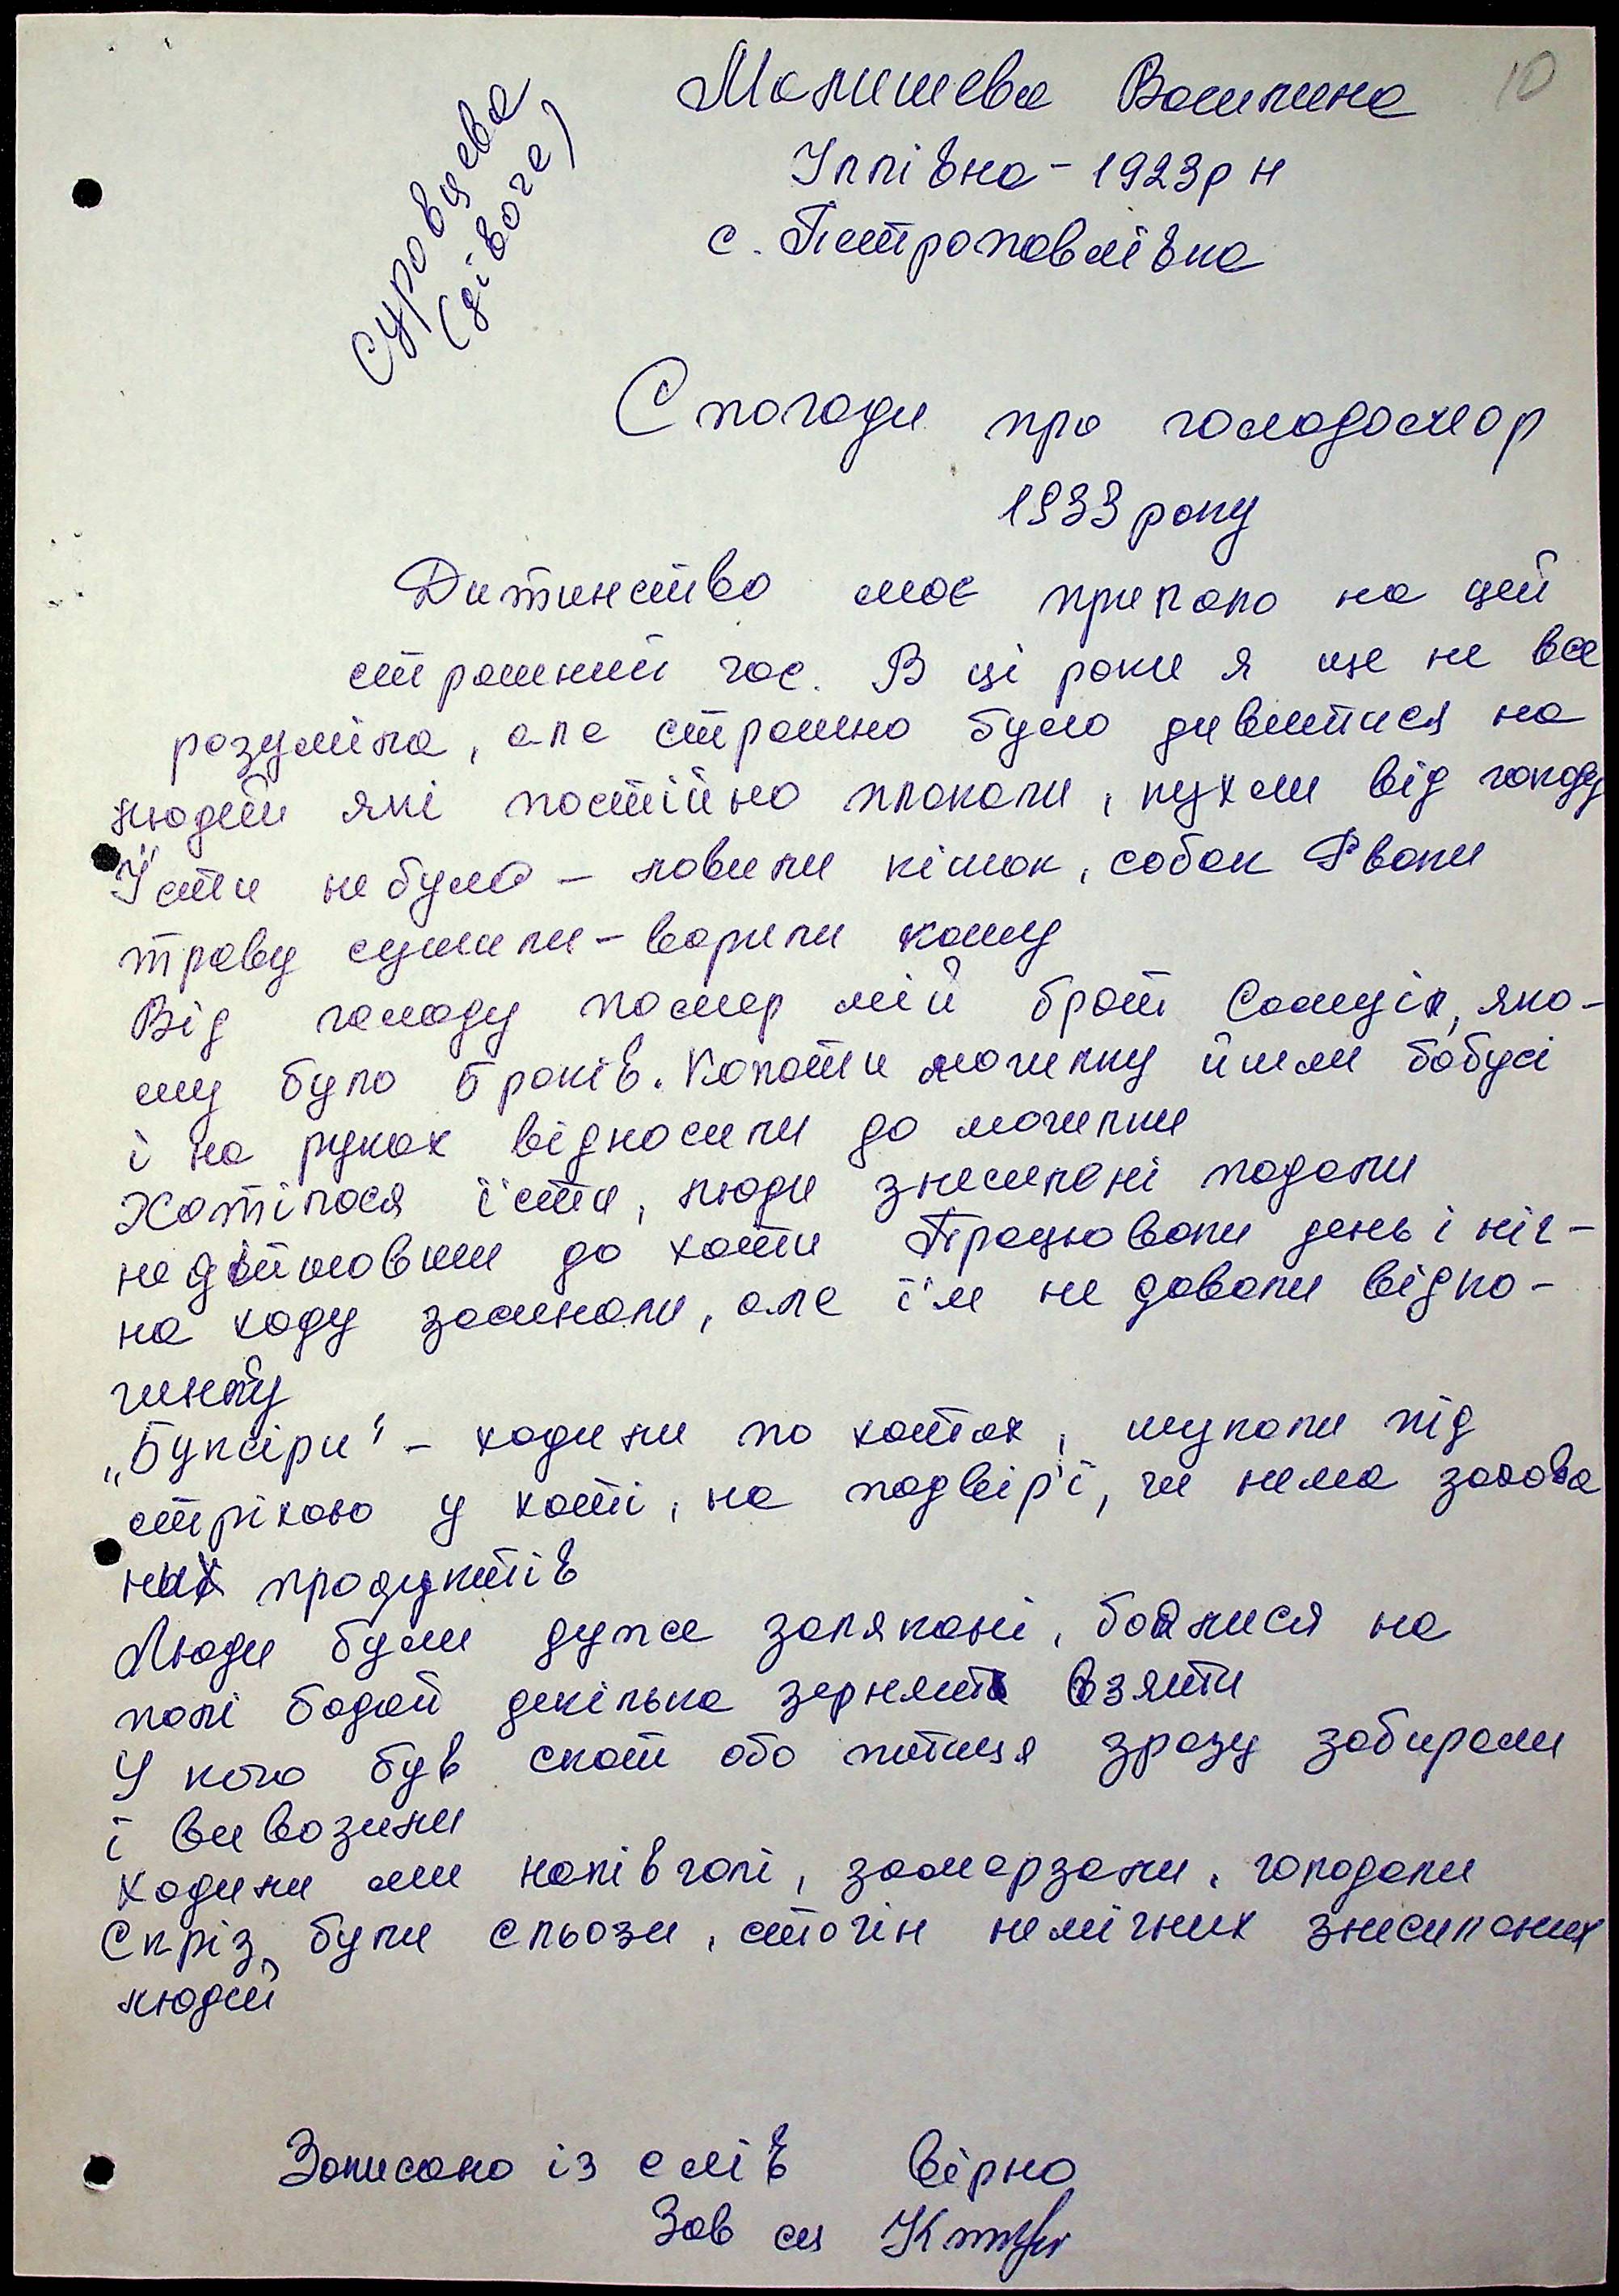 10
Малишева Васили­на
Іллівна - 1923р н
с. Петропавлівка
Суровцева
(дівоче)
Спогади про голодомор
1933 року
Дитинство моє припало на цей
страшний час. В ці роки я ще не все
розуміла, але страшно було дивитися на
людей які постійно плакали, пухли від голоду
Їсти не було – ловили кішок, собак Рвали
траву сушили – варили кашу
Від голоду помер мій брат Самуіл, яко-
му було 5 років. Копати могилку йшли бабусі
і на руках відносили до могилки
Хотілося їсти, люди знесилені падали
не дійшовши до хати Працювали день і ніч -
на ходу засинали, але їм не давали відпо-
чинку
„Буксіри" – ходили по хатах, шукали під
стріхою у хаті, на подвір'ї, чи нема захова
них продуктів
Люди були дуже залякані, боялися на
полі бодай декілька зернят взяти
У кого був скот або птиця зразу забирали
і вивозили
Ходили ми напівголі, замерзали, голодали
Скрізь були сльози, стогін немічних знесилених
людей
Записано із слів вірно
Зав